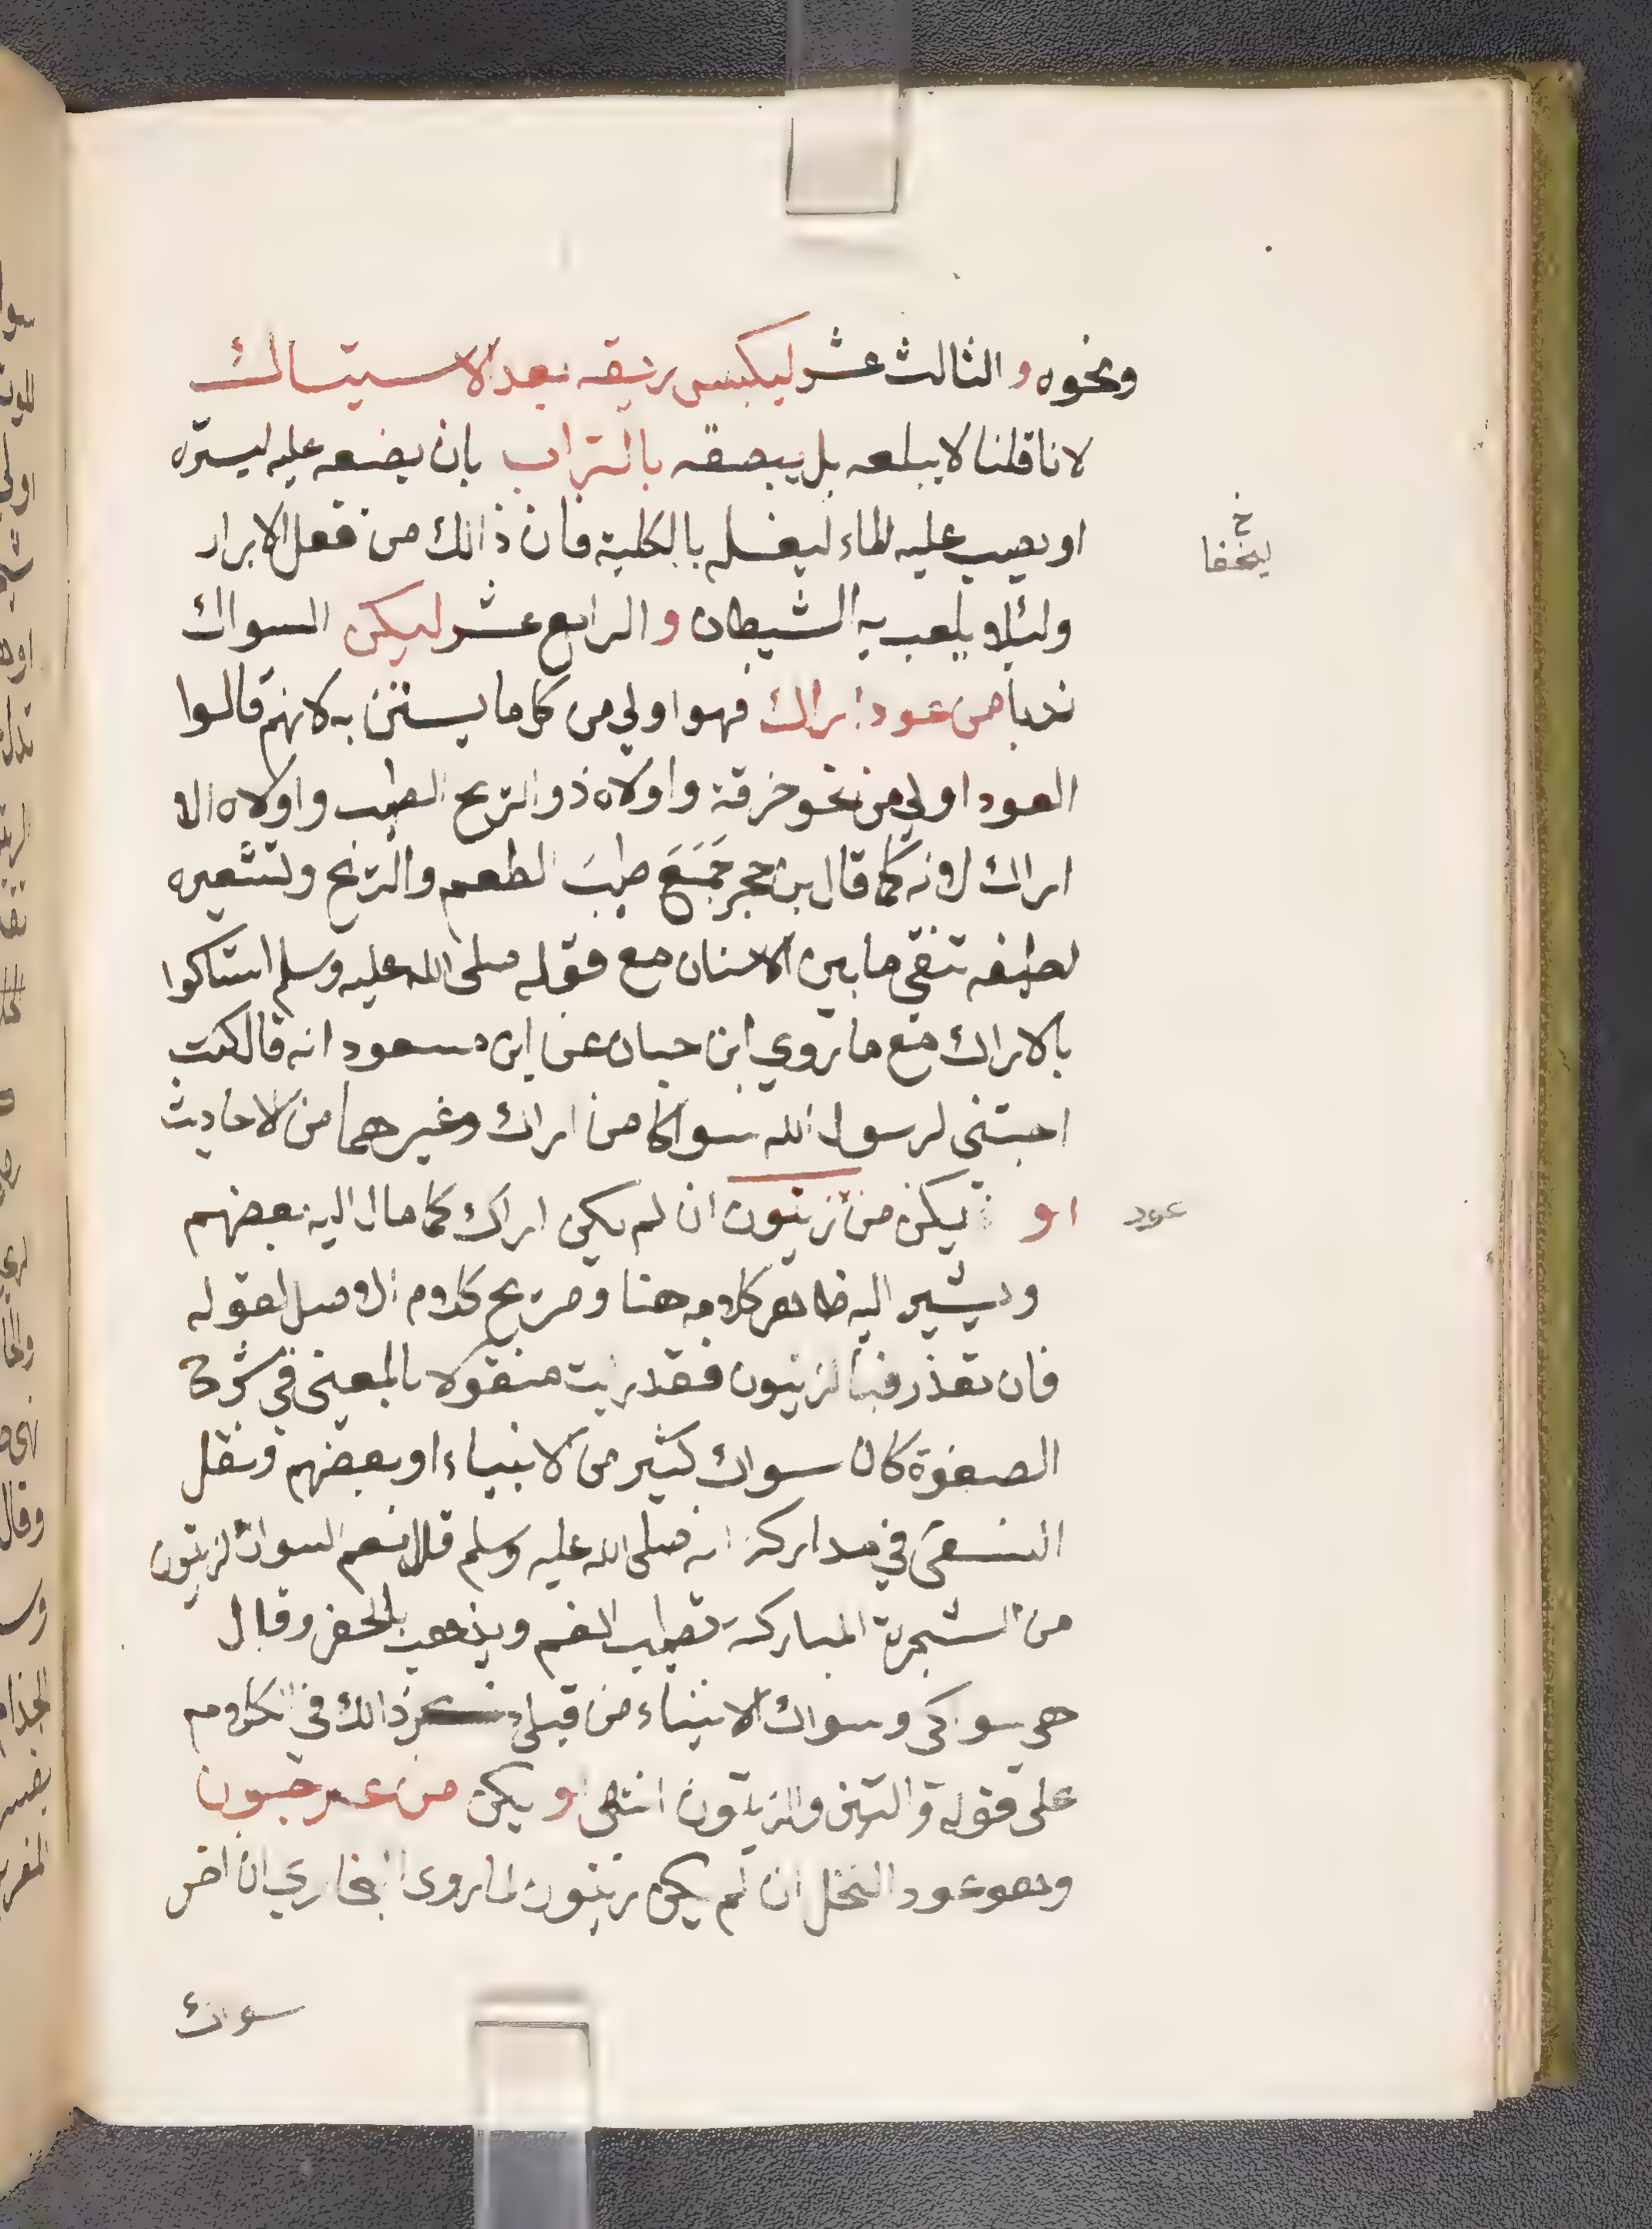 ونحوه والثالث عشر ليكبس ريقه بعد الاستياك
لانا قلنا لا يبلعه بل يبصقه بالتراب بان يضعه عليه ليستره
او يصب عليه الماء ليغسله بالكلية فان ذالك من فعل الابرار
ليخفا
خ
ولئلا يلعب به الشيطان والرابع عشر ليكن السواك
ندبا من عود اراك فهو اولي من كل ما يستن به لانهم قالوا
العود اولي من نحو خرقة واولاه ذو الريح الطيب واولاه الا
اراك لانه كما قال بن حجر جَمَعَ طيبَ الطعم والريح وتشعيره
لطيفه تنقي ما بين الاسنان مع قوله صلى الله عليه وسلم استاكوا
بالاراك مع ما روي ابن حبان عن ابن مسعود انه قال كنت
اجتني لرسول الله سواكا من اراك وغيرهما من الاحاديث
او يكن من زيتون ان لم يكن اراك كما مال اليه بعضهم
عود
ويشير اليه ظاهر كلامه هنا وصريح كلام الاصل لقوله
فان تعذر فبالزيتون فقد ريت منقولا بالمعني في شرح
الصفوة كان سواك كثير من الانبياء او بعضهم ونقل
النسفي في مداركه انه صلى الله عليه وسلم قال نعم السواك الزيتون
من الشجرة المباركة تطيب الفم ويذهب بالحفر وقال
هي سواكي وسواك الانبياء من قبلي ذكر ذالك في الكلام
على قوله والتين والزيتون انتهى او يكن من عرجون
وهو عود النخل ان لم يكن زيتون لما روى البخاري ان اخر
سواك